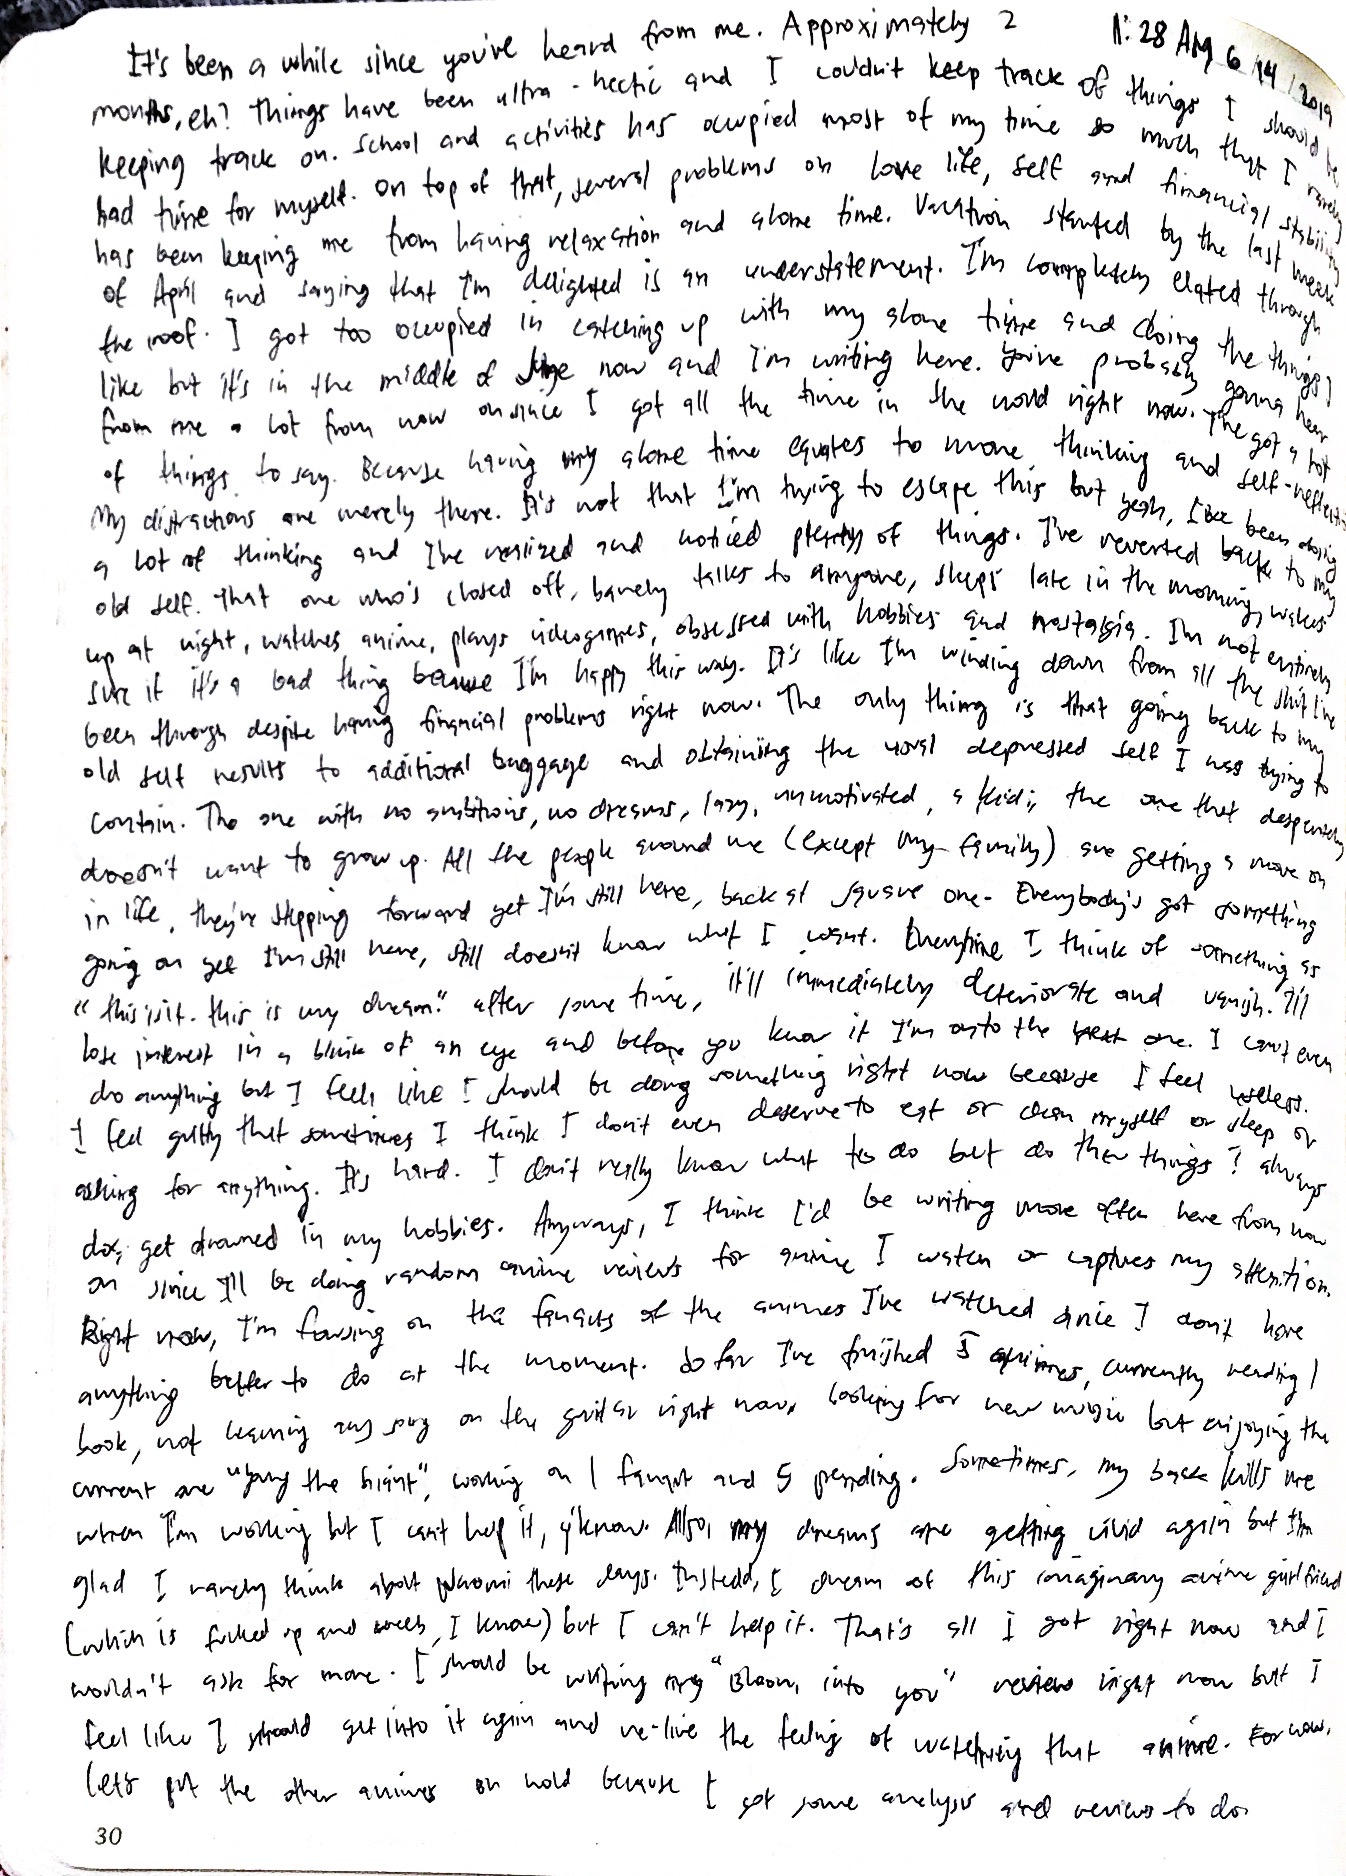 11:28 Aug 6/14/2019
It's been a while since you've heard from me. Approximately 2
months, eh? Things have been ultra-hectic and I couldn't keep track of things I should be
keeping track on. School and activities has occupied most of my time so much that I rarely
had time for myself. On top of that, several problems on love life, self and financial stability
has been keeping me from having relaxation and alone time. Vacation started by the last week
of April and saying that I'm delighted is an understatement. I'm completely elated through
the roof. I got too occupied in catching up with my alone time and doing the things I
like but it's in the middle of June now and I'm writing here. You're probably gonna hear
from me a lot from now on since I got all the time in the world right now. I've got a lot
of things to say. Because having my alone time equates to more thinking and self-reflection
My distractions are merely there. It's not that I'm trying to escape this but yeah, I've been doing
a lot of thinking and I've realized and noticed plenty of things. I've reverted back to my
old self. That one who's closed off, barely talks to anyone, sleeps late in the morning, wakes
up at night, watches anime, plays videogames, obsessed with hobbies and nostalgia. I'm not entirely
sure if it's a bad thing because I'm happy this way. It's like I'm winding down from all the shit I've
been through despite having financial problems right now. The only thing is that going back to my
old self results to additional baggage and obtaining the usual depressed self I was trying to
contain. The one with no ambitions, no dreams, lazy, unmotivated, a kid; the one that desperately
doesn't want to grow up. All the people around me (except my family) are getting a move on
in life, they're stepping forward yet I'm still here, back at square one. Everybody's got something
going on yet I'm still here, still doesn't know what I want. Everytime I think of something as
"this is it. this is my dream." after some time, it'll immediately deteriorate and vanish. I'll
lose interest in a blink of an eye and before you know it I'm onto the next one. I can't even
do anything but I feel like I should be doing something right now because I feel useless.
I feel guilty that sometimes I think I don't even deserve to eat or clean myself or sleep or
asking for anything. It's hard. I don't really know what to do but do the things I always
do; get drowned in my hobbies. Anyways, I think I'd be writing more often here from now
on since I'll be doing random anime reviews for anime I watch or captures my attention.
Right now, I'm focusing on the fanarts of the animes I've watched since I don't have
anything better to do at the moment. So far I've finished 5 animes, currently reading 1
book, not learning any song on the guitar right now, looking for new music but enjoying the
current one "young the giant", working on 1 fanart and 5 pending. Sometimes, my back kills me
when I'm working but I can't help it, y'know. Also, my dreams are getting vivid again but I'm
glad I rarely think about Naomi these days. Instead, I dream of this imaginary anime girlfriend
(which is fucked up and, I know) but I can't help it. That's all I got right now and I
wouldn't ask for more. I should be writing my "Bloom into you" review right now but I
feel like I should get into it again and re-live the feeling of watching that anime. For now,
let's put the other animes on hold because I got some analysis and reviews to do.
30